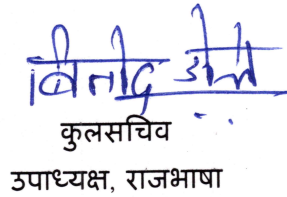 विनोद डोले
कुलसचिव
उपाध्यक्ष, राजभाषा